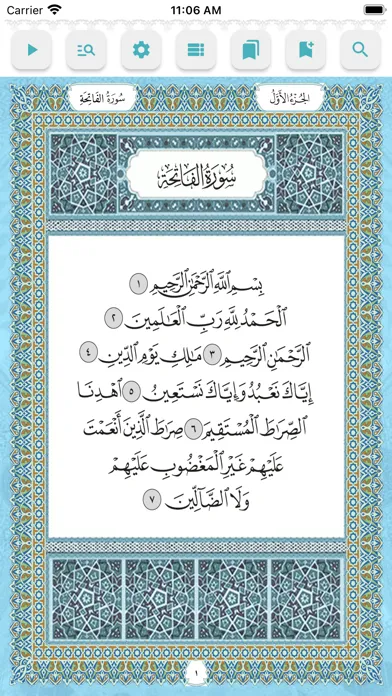 Carrier 11:06 AM
الجزء الأول سورة الفاتحة
سُورَةُ الفَاتِحَةِ
بِسْمِ ٱللَّهِ ٱلرَّحْمَٰنِ ٱلرَّحِيمِ ١
ٱلْحَمْدُ لِلَّهِ رَبِّ ٱلْعَٰلَمِينَ ٢
ٱلرَّحْمَٰنِ ٱلرَّحِيمِ ٣ مَٰلِكِ يَوْمِ ٱلدِّينِ ٤
إِيَّاكَ نَعْبُدُ وَإِيَّاكَ نَسْتَعِينُ ٥ ٱهْدِنَا
ٱلصِّرَٰطَ ٱلْمُسْتَقِيمَ ٦ صِرَٰطَ ٱلَّذِينَ أَنْعَمْتَ
عَلَيْهِمْ غَيْرِ ٱلْمَغْضُوبِ عَلَيْهِمْ
وَلَا ٱلضَّآلِّينَ ٧
١